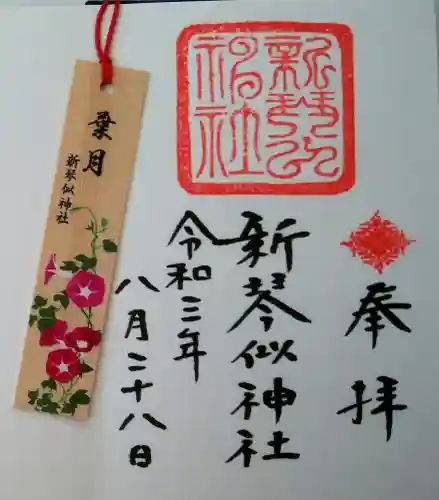 奉拝
新琴似神社
令和三年
八月二十八日
新琴似
神社
葉月
新琴似神社